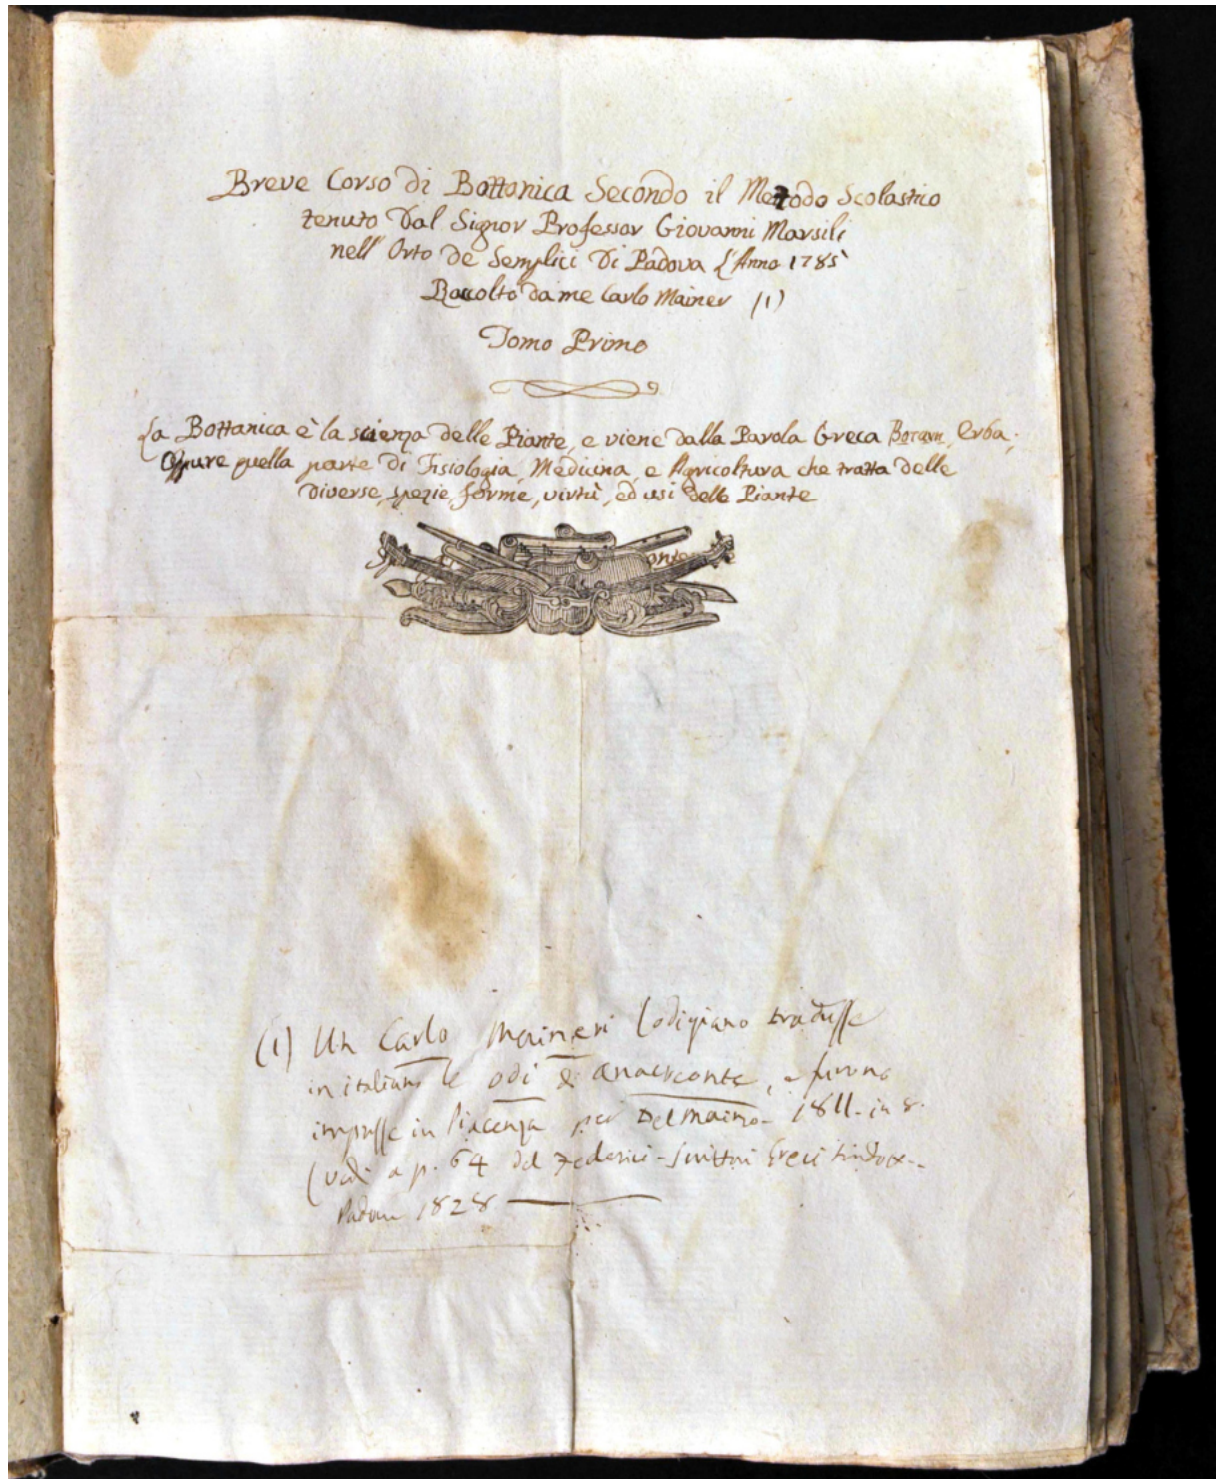 Breve Corso di Bottanica Secondo il Mettodo Scolastico
tenuto Dal Signor Professor Giovanni Marsili
nell' Orto de Semplici Di Padova L'Anno 1785
Raccolto da me Carlo Mainer (1)
Tomo Primo
La Bottanica è la scienza delle Piante, e viene dalla Parola Greca Βοτανη, Erba;
Oppure quella parte di Fisiologia, Medicina, e Agricoltura che tratta delle
Diverse, spezie, forme, virtù, ed usi delle Piante
(1) Un Carlo Maineri Lodigiano tradusse
in italiano le odi di Anacreonte, e furono
impresse in Piacenza pel Del Maino - 1811 - in 8.
(vedi a p. 64 del Federici - Scrittori Greci
Padova 1828